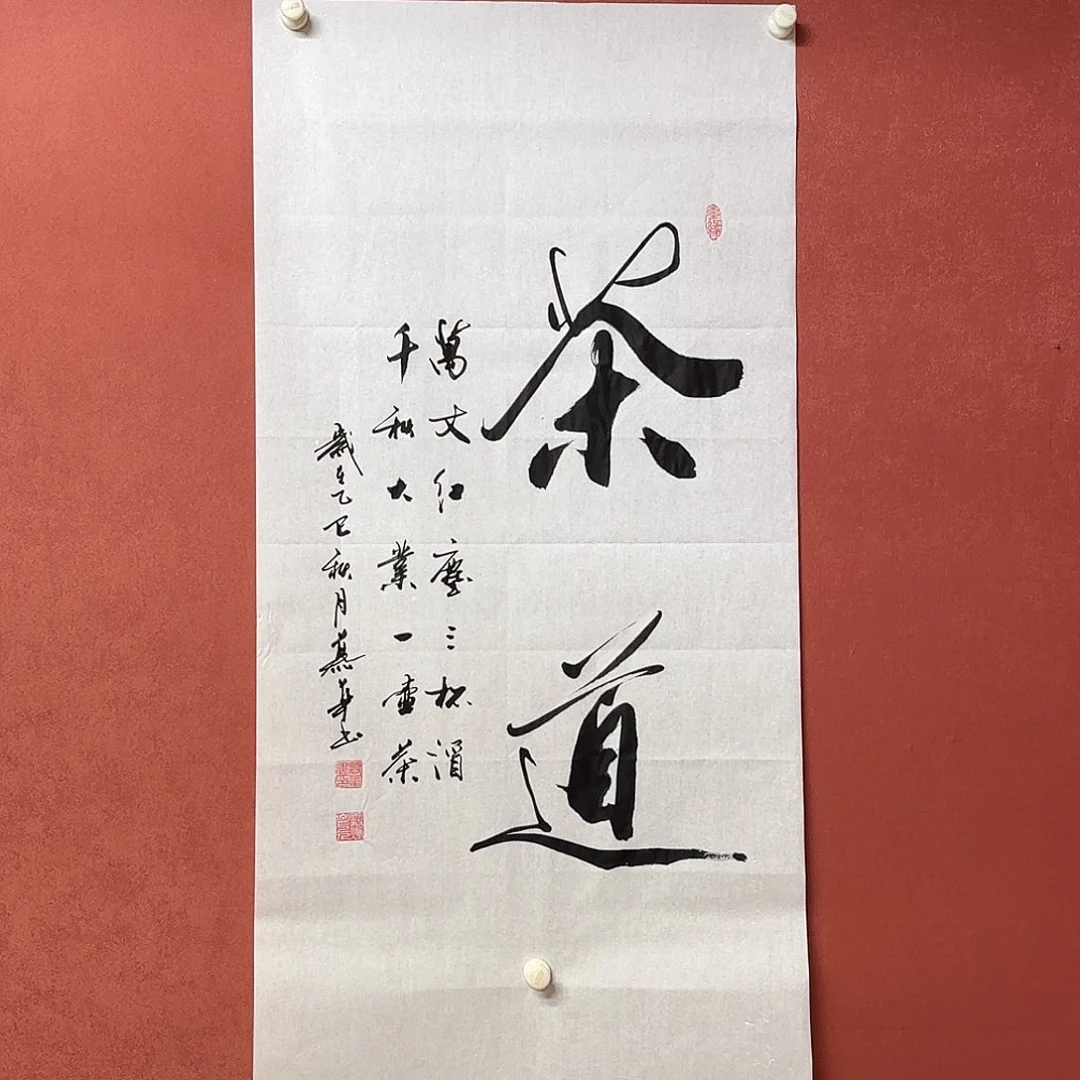 茶道
萬丈红塵三杯酒
千秋大業一壷茶
歲在乙巳秋月燕华书